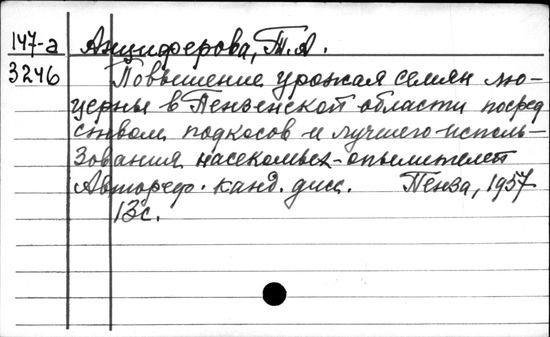 147-а Анциферова, Т.А.
3246 Повышение урожая семян лю-
церны в Пензенской области посред
ством подкосов и лучшего исполь-
зования насекомых-опылителей
Автореф. канд. дисс. Пенза, 1957
13с.